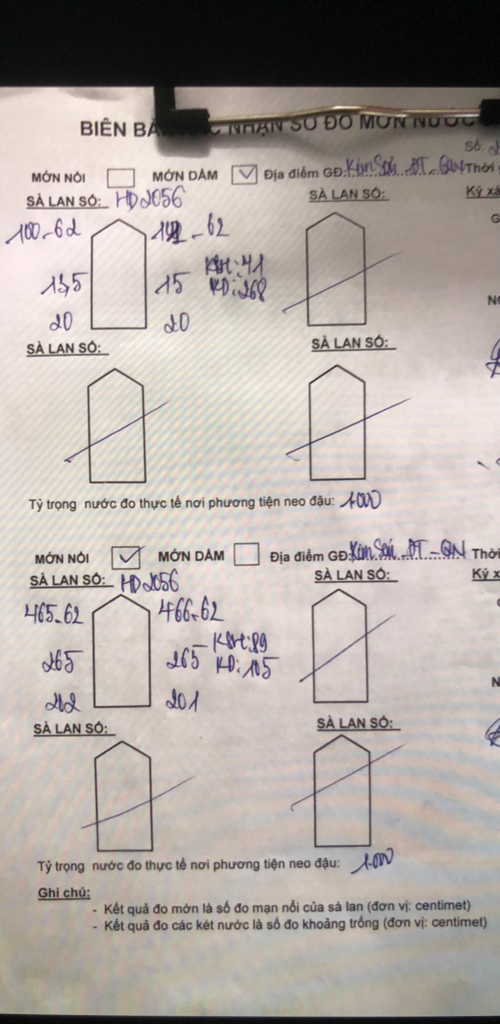 BIÊN BẢN NHẬN SỐ ĐO MỚN NƯỚC
Số:
MỚN NỔI MỚN DẰM Địa điểm GĐ: Kim Sơn - ĐT - QN Thời
SÀ LAN SỐ: HD2056 SÀ LAN SỐ: Ký xá
100-62 -62
13,5 15 KSH: 41
KĐ: 268
20 20
SÀ LAN SỐ: SÀ LAN SỐ:
Tỷ trọng nước đo thực tế nơi phương tiện neo đậu: 1.000
MỚN NỔI MỚN DẰM Địa điểm GĐ: Kim Sơn - ĐT - QN Thời
SÀ LAN SỐ: HD2056 SÀ LAN SỐ: Ký x
465-62 466-62
265 265 KSH: 89
KĐ: 105
202 201
SÀ LAN SỐ: SÀ LAN SỐ:
Tỷ trọng nước đo thực tế nơi phương tiện neo đậu: 1.000
Ghi chú:
- Kết quả đo mớn là số đo mạn nổi của sà lan (đơn vị: centimet)
- Kết quả đo các két nước là số đo khoảng trống (đơn vị: centimet)